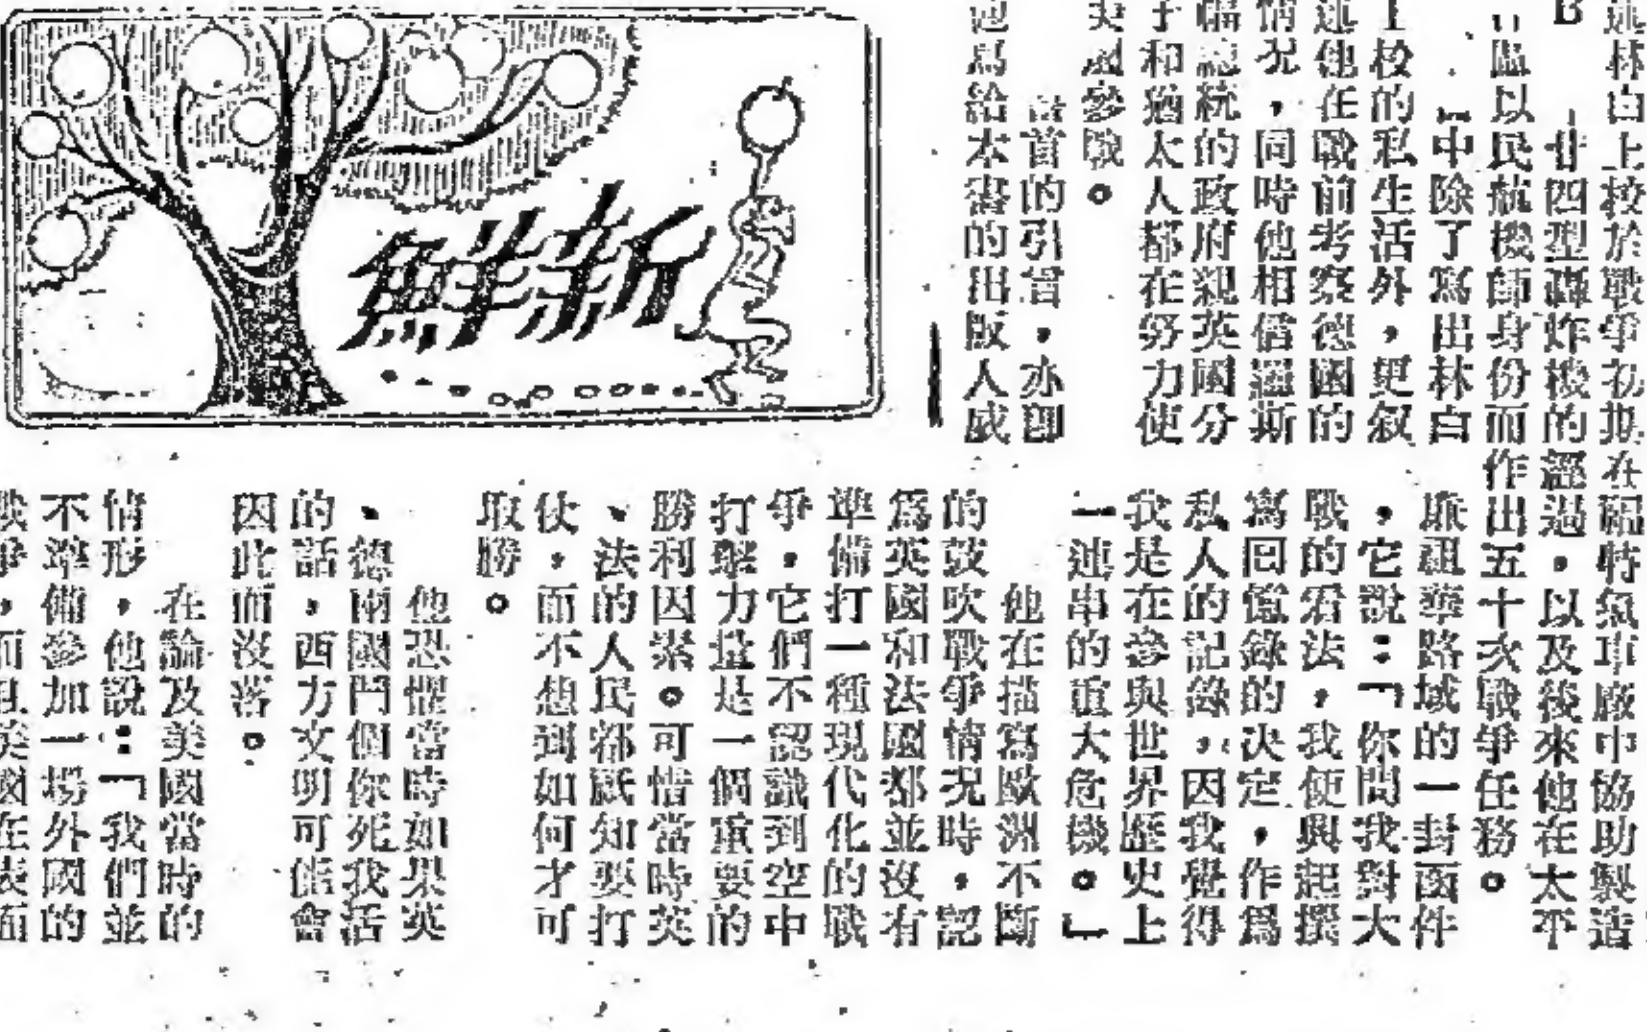 述林白上校於戰爭初期在福特氣車廠中協助製造
B
廿四型轟炸機的經過,以及後來他在太平
區以民航機師身份而作出五十次戰爭任務。
中除了寫出林白
上校的私生活外,更叙
述他在戰前考察德國的
情况,同時他相信羅斯
福總統的政府親英國分
子和猶太人都在努力使
參戰。
首的引言,亦卽
他爲給本書的出版人威
廉祖華路域的一封函件
,它說:「你問我對大
戰的看法,我便興起撰
寫回憶錄的决定,作爲
私人的記錄,因我覺得
我是在參與世界歷史上
一連串的重大危機。」
他在描寫歐洲不斷
的鼓吹戰爭情况時,認
爲英國和法國都並沒有
準備打一種現代化的戰
爭,它們不認識到空中
打擊力量是一個重要的
勝利因素。可惜當時英
、法的人民都祇知要打
仗,而不想到如何才可
取勝。
他恐懼當時如果英
、德兩國鬥個你死我活
的話,西方文明可能會
因此而沒落。
在論及美國當時的
情形,他說:「我們並
不準備參加一塲外國的
戰爭,而且美國在表面
新鮮